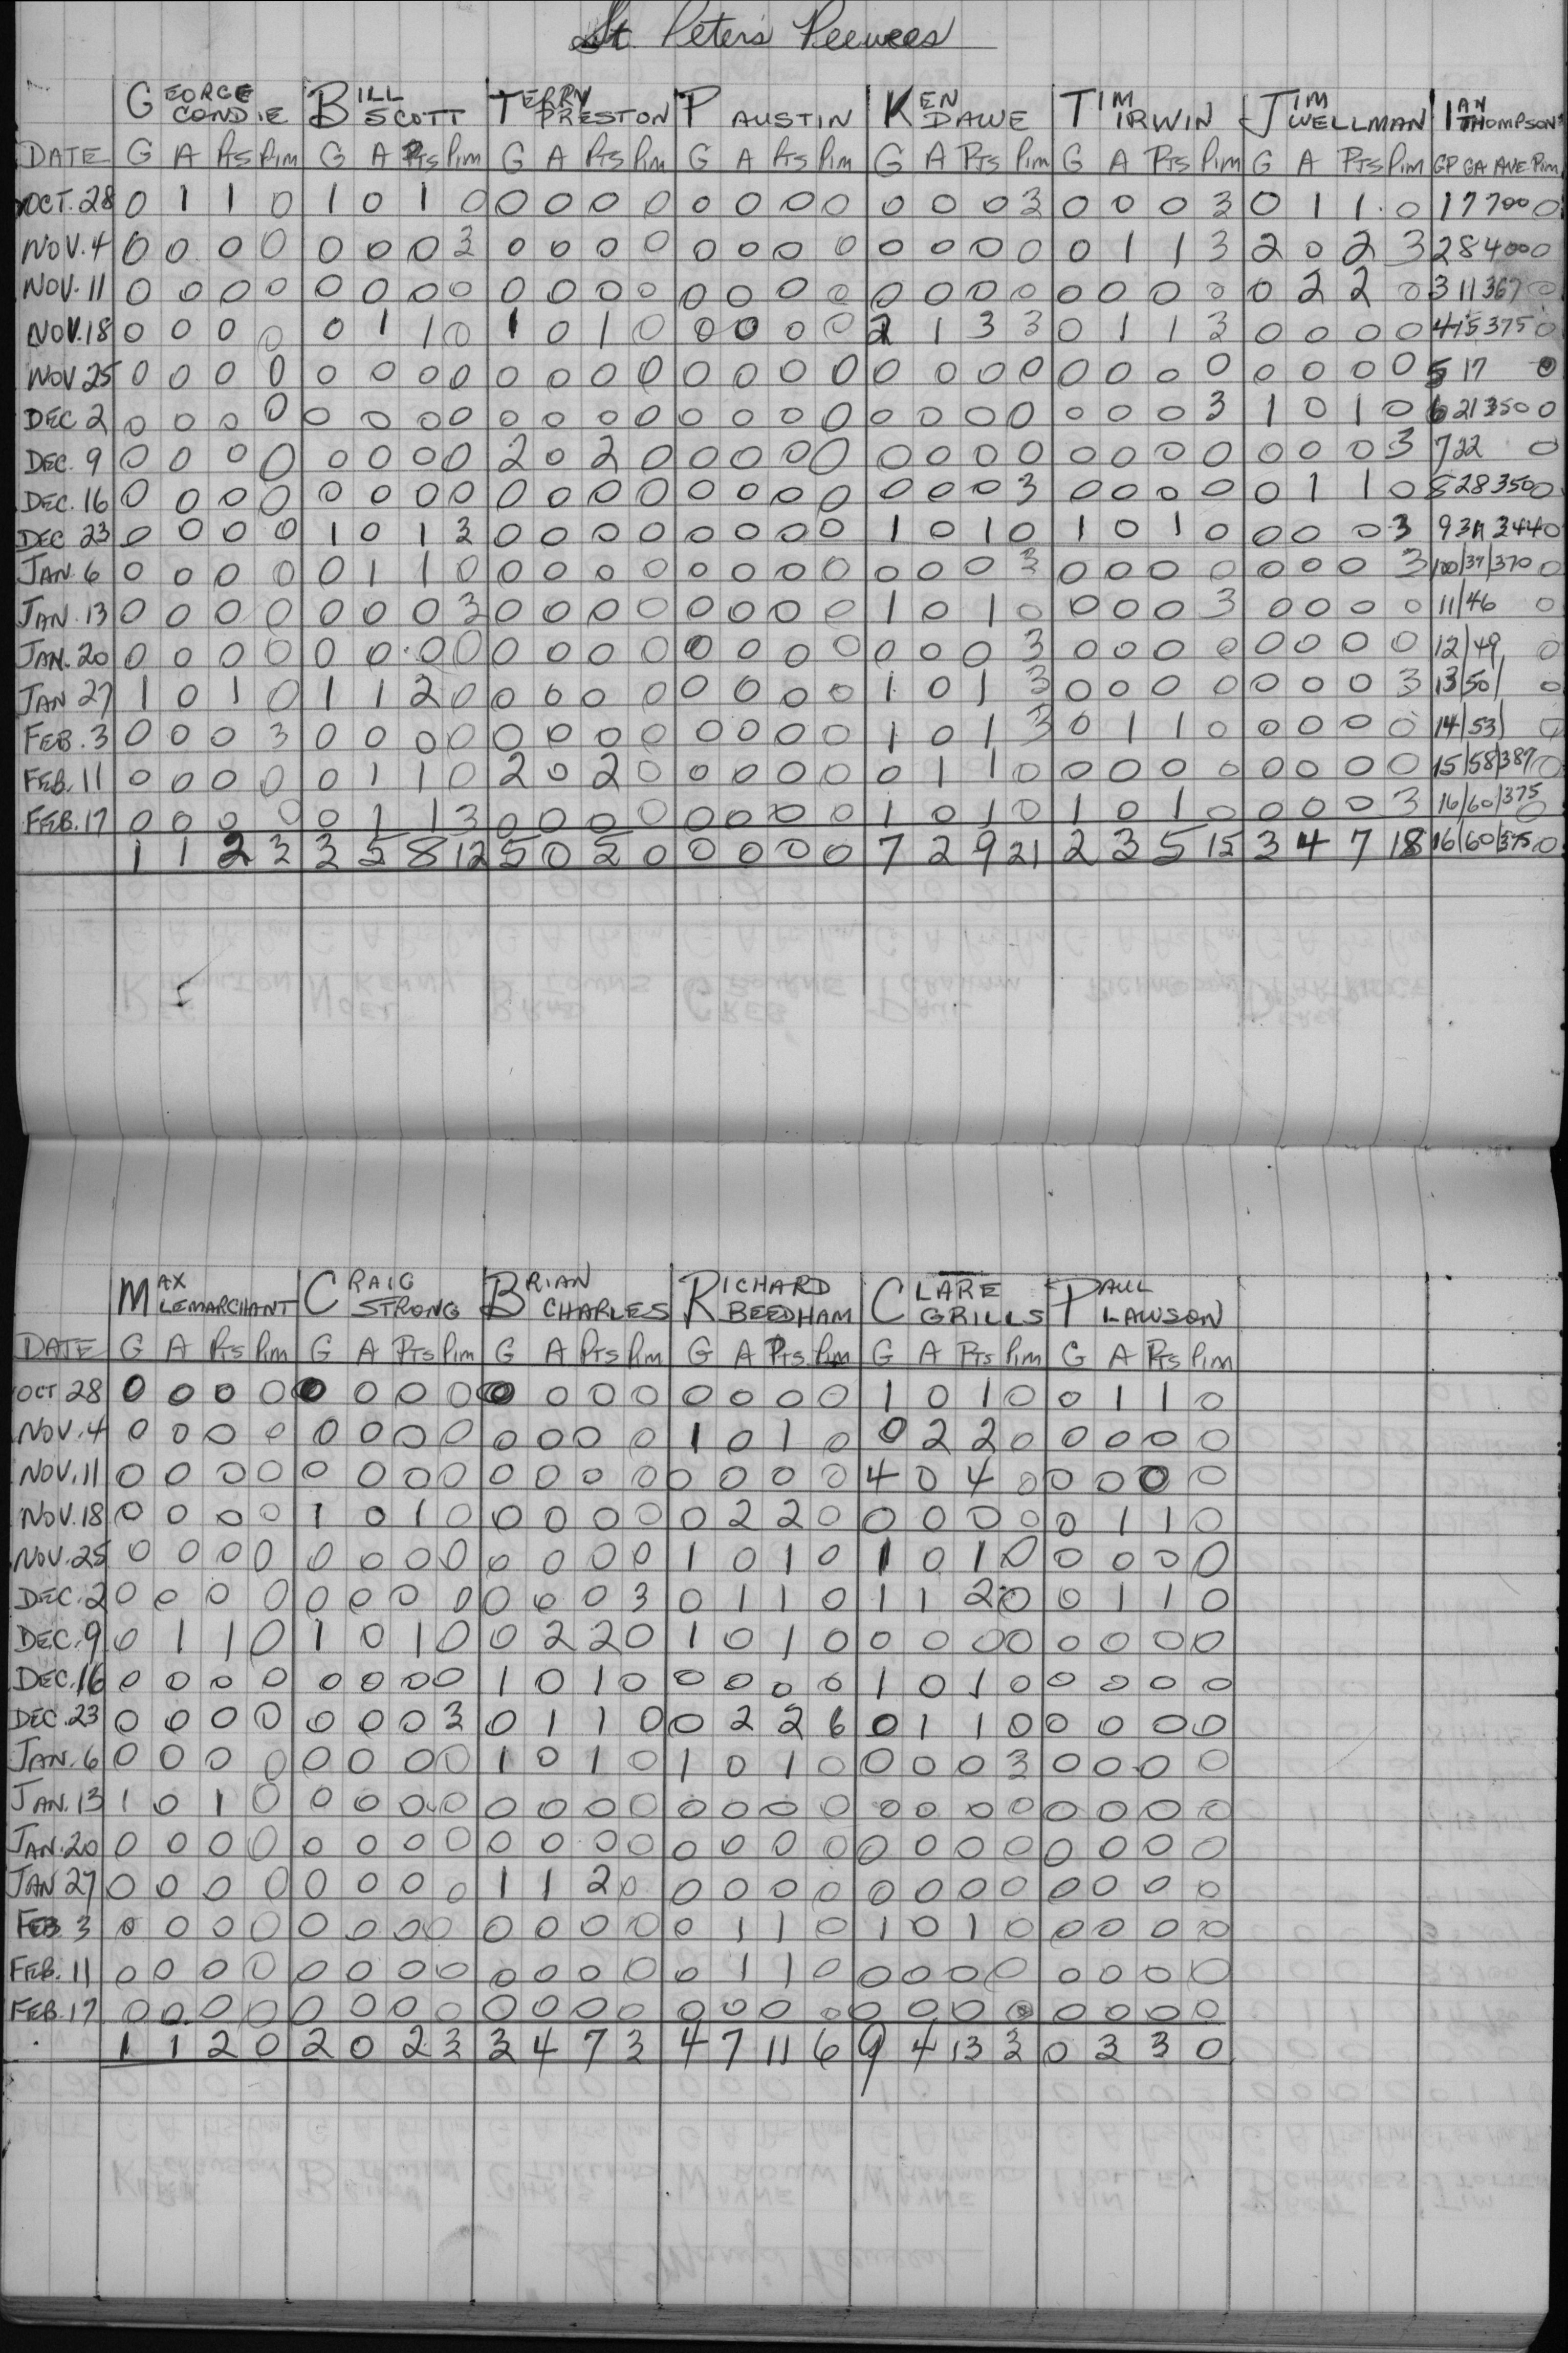 St. Peter's Peewees
GEORGE CONDIE BILL SCOTT TERRY PRESTON P AUSTIN KEN DAWE TIM IRWIN JIM WELLMAN IAN THOMPSON
DATE G A Pts Pim G A Pts Pim G A Pts Pim G A Pts Pim G A Pts Pim G A Pts Pim G A Pts Pim GP GA AVE. Pim
OCT. 28 0 1 1 0 1 0 1 0 0 0 0 0 0 0 0 0 0 0 0 3 0 0 0 3 0 1 1 0 1 7 700 0
NOV. 4 0 0 0 0 0 0 0 3 0 0 0 0 0 0 0 0 0 0 0 0 0 1 1 3 2 0 2 3 2 8 400 0
NOV. 11 0 0 0 0 0 0 0 0 0 0 0 0 0 0 0 0 0 0 0 0 0 0 0 0 0 2 2 0 3 11 367 0
NOV. 18 0 0 0 0 0 1 1 0 1 0 1 0 0 0 0 0 2 1 3 3 0 1 1 3 0 0 0 0 4 15 375 0
NOV 25 0 0 0 0 0 0 0 0 0 0 0 0 0 0 0 0 0 0 0 0 0 0 0 0 0 0 0 0 5 17 0
DEC 2 0 0 0 0 0 0 0 0 0 0 0 0 0 0 0 0 0 0 0 0 0 0 0 3 1 0 1 0 6 21 350 0
DEC. 9 0 0 0 0 0 0 0 0 2 0 2 0 0 0 0 0 0 0 0 0 0 0 0 0 0 0 0 3 7 22 0
DEC. 16 0 0 0 0 0 0 0 0 0 0 0 0 0 0 0 0 0 0 0 3 0 0 0 0 0 1 1 0 8 28 350 0
DEC 23 0 0 0 0 1 0 1 3 0 0 0 0 0 0 0 0 1 0 1 0 1 0 1 0 0 0 0 3 9 31 344 0
JAN. 6 0 0 0 0 0 1 1 0 0 0 0 0 0 0 0 0 0 0 0 3 0 0 0 0 0 0 0 3 10/37/370 0
JAN. 13 0 0 0 0 0 0 0 3 0 0 0 0 0 0 0 0 1 0 1 0 0 0 0 3 0 0 0 0 11/46 0
JAN. 20 0 0 0 0 0 0 0 0 0 0 0 0 0 0 0 0 0 0 0 3 0 0 0 0 0 0 0 0 12/49 0
JAN 27 1 0 1 0 1 1 2 0 0 0 0 0 0 0 0 0 1 0 1 3 0 0 0 0 0 0 0 3 13/50/ 0
FEB. 3 0 0 0 3 0 0 0 0 0 0 0 0 0 0 0 0 1 0 1 3 0 1 1 0 0 0 0 0 14/53/ 0
FEB. 11 0 0 0 0 0 1 1 0 2 0 2 0 0 0 0 0 0 1 1 0 0 0 0 0 0 0 0 0 15/58/387 0
FEB. 17 0 0 0 0 0 1 1 3 0 0 0 0 0 0 0 0 1 0 1 0 1 0 1 0 0 0 0 3 16/60/375 0
1 1 2 3 3 5 8 12 5 0 5 0 0 0 0 0 7 2 9 21 2 3 5 15 3 4 7 18 16/60/375 0
MAX LEMARCHANT CRAIG STRONG BRIAN CHARLES RICHARD BEEDHAM CLARE GRILLS PAUL LAWSON
DATE G A Pts Pim G A Pts Pim G A Pts Pim G A Pts Pim G A Pts Pim G A Pts Pim
OCT 28 0 0 0 0 0 0 0 0 0 0 0 0 0 0 0 0 1 0 1 0 0 1 1 0
NOV. 4 0 0 0 0 0 0 0 0 0 0 0 0 1 0 1 0 0 2 2 0 0 0 0 0
NOV. 11 0 0 0 0 0 0 0 0 0 0 0 0 0 0 0 0 4 0 4 0 0 0 0 0
NOV. 18 0 0 0 0 1 0 1 0 0 0 0 0 0 2 2 0 0 0 0 0 0 1 1 0
NOV. 25 0 0 0 0 0 0 0 0 0 0 0 0 1 0 1 0 1 0 1 0 0 0 0 0
DEC. 2 0 0 0 0 0 0 0 0 0 0 0 3 0 1 1 0 1 1 2 0 0 1 1 0
DEC. 9 0 1 1 0 1 0 1 0 0 2 2 0 1 0 1 0 0 0 0 0 0 0 0 0
DEC. 16 0 0 0 0 0 0 0 0 1 0 1 0 0 0 0 0 1 0 1 0 0 0 0 0
DEC. 23 0 0 0 0 0 0 0 3 0 1 1 0 0 2 2 6 0 1 1 0 0 0 0 0
JAN. 6 0 0 0 0 0 0 0 0 1 0 1 0 1 0 1 0 0 0 0 3 0 0 0 0
JAN. 13 1 0 1 0 0 0 0 0 0 0 0 0 0 0 0 0 0 0 0 0 0 0 0 0
JAN. 20 0 0 0 0 0 0 0 0 0 0 0 0 0 0 0 0 0 0 0 0 0 0 0 0
JAN 27 0 0 0 0 0 0 0 0 1 1 2 0 0 0 0 0 0 0 0 0 0 0 0 0
FEB 3 0 0 0 0 0 0 0 0 0 0 0 0 0 1 1 0 1 0 1 0 0 0 0 0
FEB. 11 0 0 0 0 0 0 0 0 0 0 0 0 0 1 1 0 0 0 0 0 0 0 0 0
FEB. 17 0 0 0 0 0 0 0 0 0 0 0 0 0 0 0 0 0 0 0 0 0 0 0 0
1 1 2 0 2 0 2 3 3 4 7 3 4 7 11 6 9 4 13 3 0 3 3 0